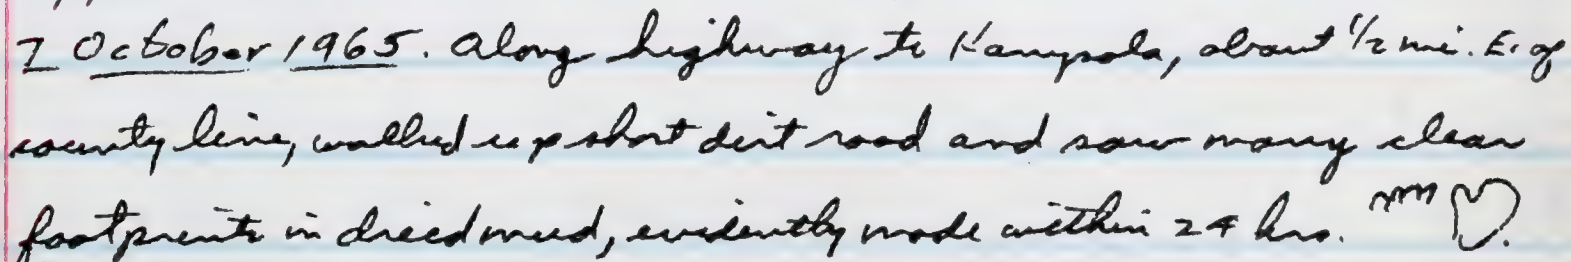 7 October 1965. Along highway to Kampala, about 1/2 mi. E. of
county line, walked up short dirt road and saw many clear
footprints in dried mud, evidently made within 24 hrs.